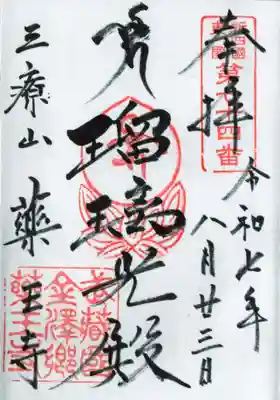 奉拝
令和七年
八月廿三日
瑠璃光殿
三療山 薬王寺
金澤郷